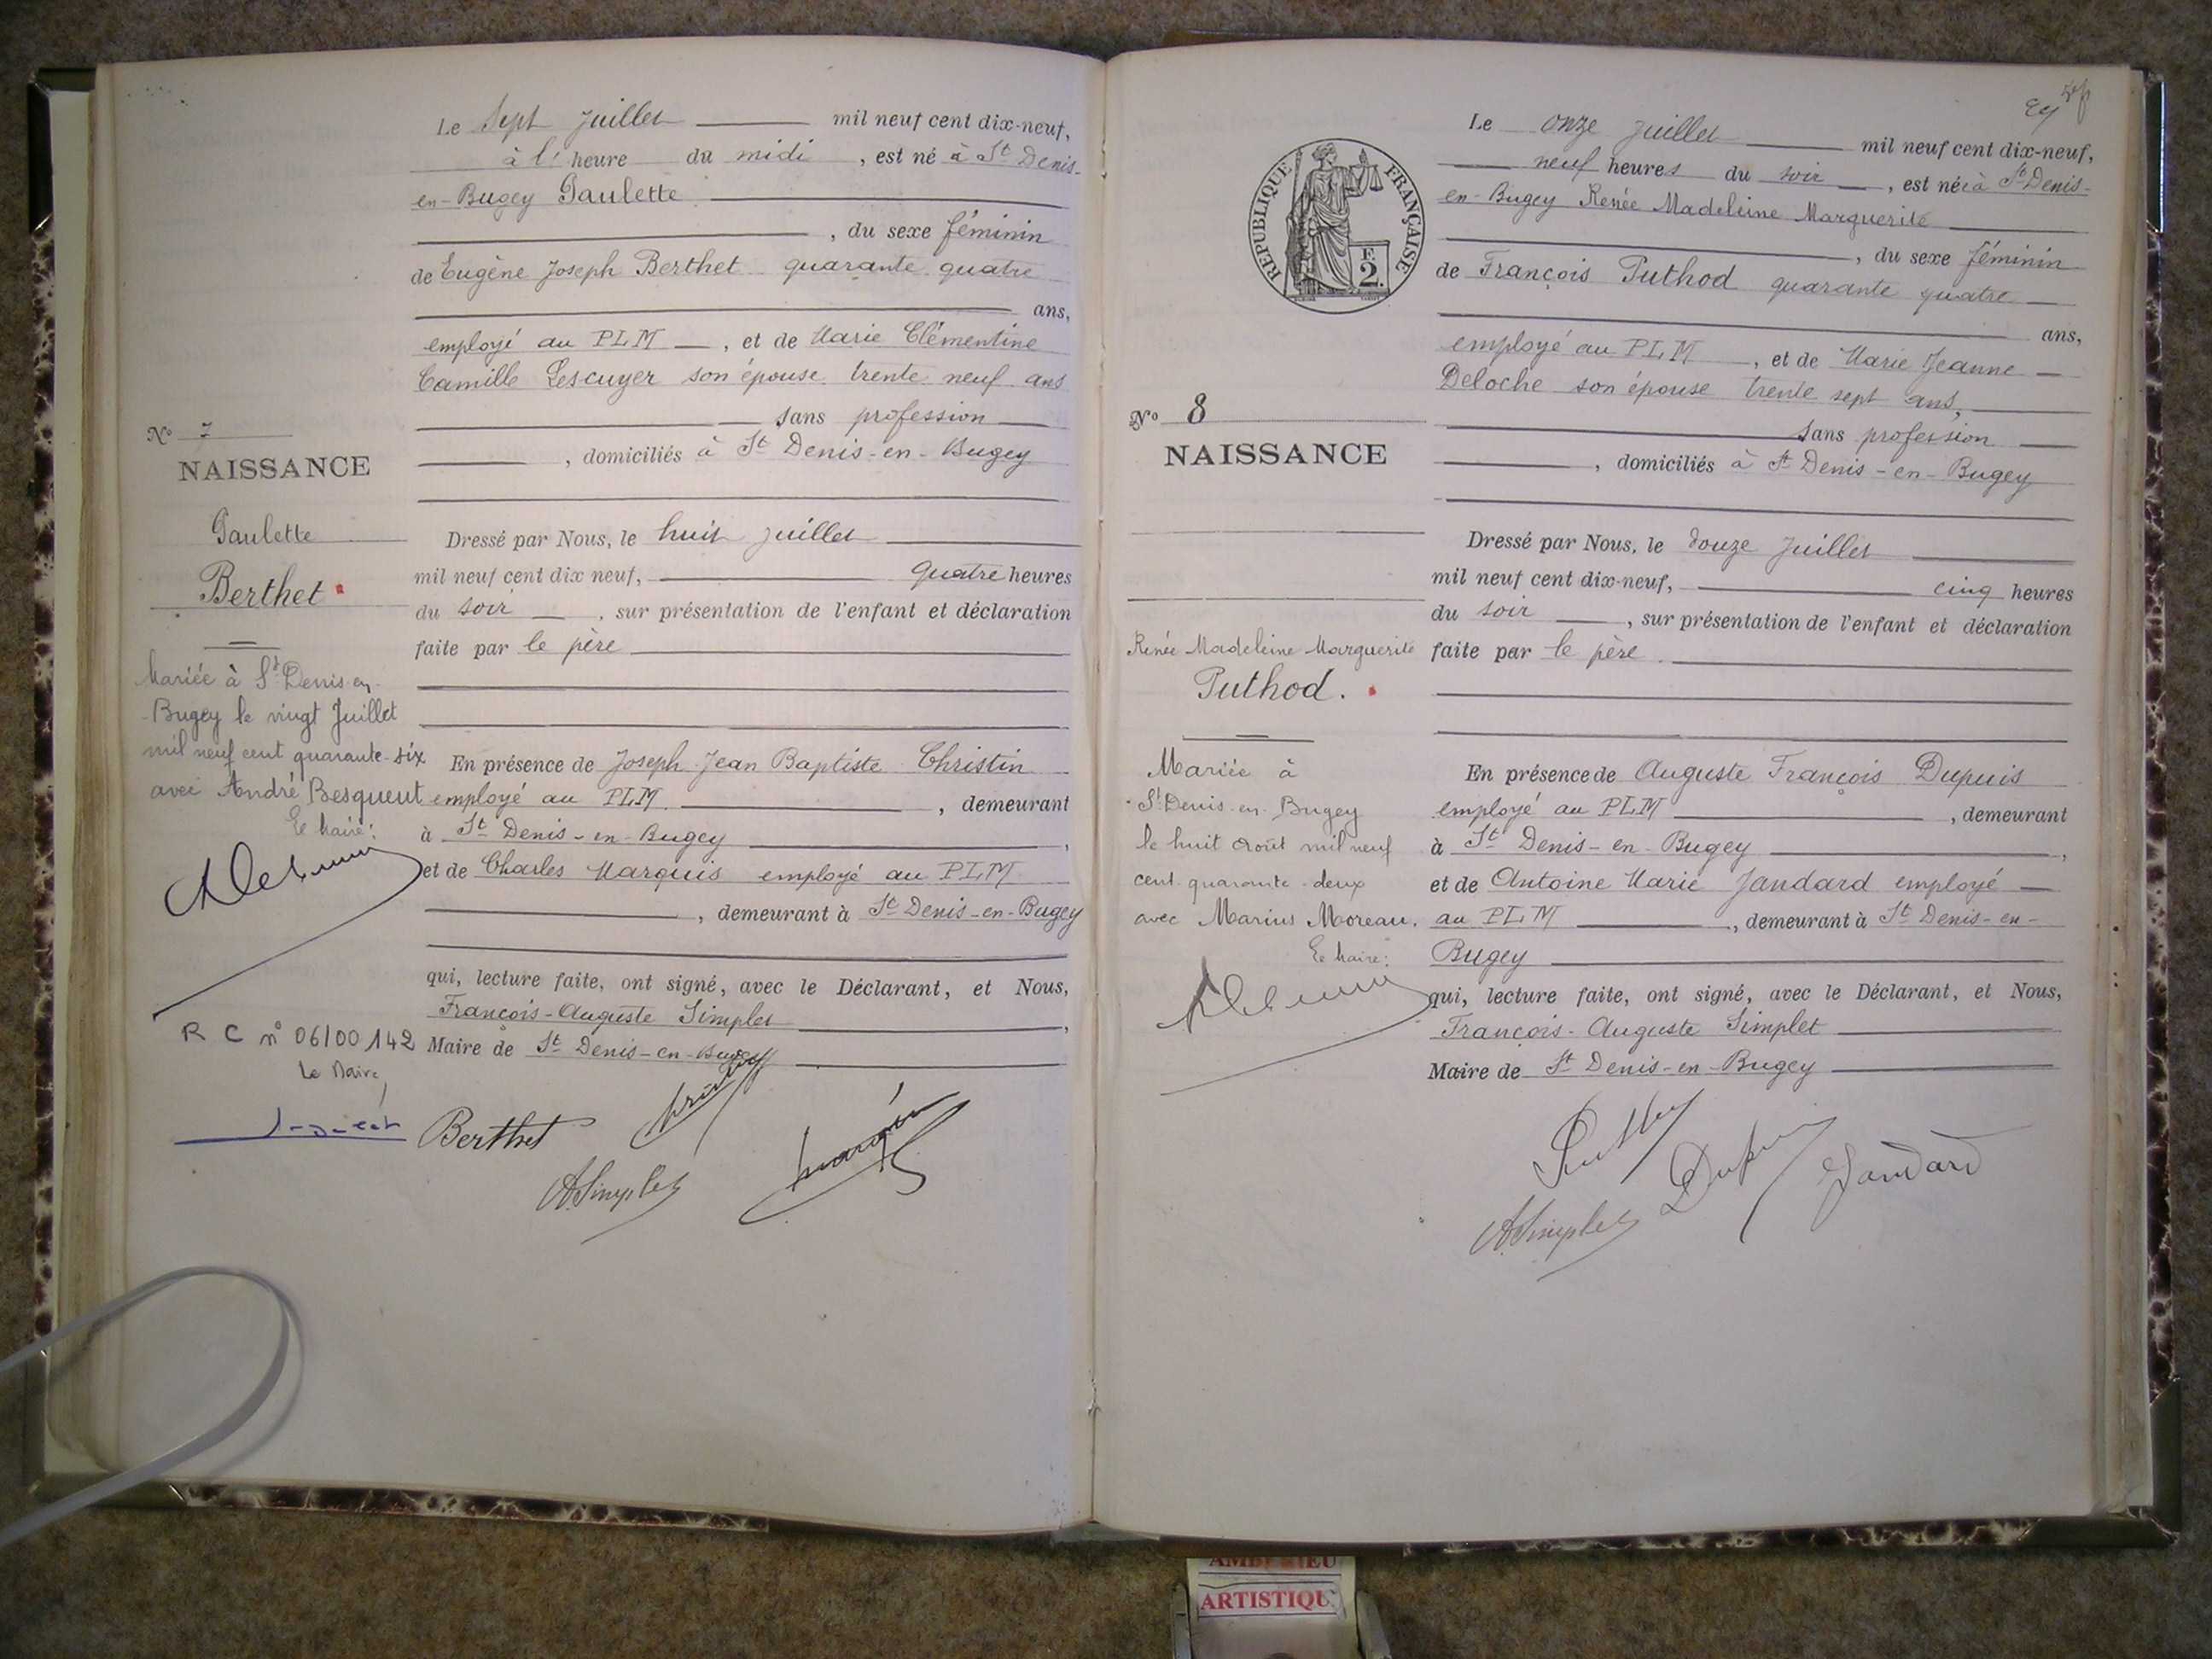 Le Sept Juillet mil neuf cent dix-neuf,
à l' heure du midi , est né à St Denis-
en-Bugey Paulette
, du sexe féminin
de Eugène Joseph Berthet quarante quatre
ans,
employé au PLM , et de Marie Clémentine
Camille Lescuyer son épouse trente neuf ans
sans profession
, domiciliés à St Denis-en-Bugey
Nº 7
NAISSANCE
Paulette
Berthet
Dressé par Nous, le huit Juillet
mil neuf cent dix neuf, quatre heures
du soir , sur présentation de l'enfant et déclaration
faite par le père
Mariée à St Denis-en-
-Bugey le vingt Juillet
mil neuf cent quarante-six
avec André Besqueut
Le Maire:
En présence de Joseph Jean Baptiste Christin
employé au PLM , demeurant
à St Denis-en-Bugey ,
et de Charles Marquis employé au PLM
, demeurant à St Denis-en-Bugey
qui, lecture faite, ont signé, avec le Déclarant, et Nous,
François-Auguste Simplet ,
Maire de St Denis-en-Bugey
R C nº 06/00142
Le Maire,
Berthet
ASimplet
Marquis
Le onze Juillet mil neuf cent dix-neuf,
neuf heures du soir , est née à St Denis-
en-Bugey Renée Madeleine Marguerite
, du sexe féminin
de François Puthod quarante quatre
ans,
employé au PLM , et de Marie Jeanne
Deloche son épouse trente sept ans,
sans profession
, domiciliés à St Denis-en-Bugey
RÉPUBLIQUE FRANÇAISE
F.
2.
Nº 8
NAISSANCE
Renée Madeleine Marguerite
Puthod.
Dressé par Nous, le douze Juillet
mil neuf cent dix-neuf, cinq heures
du soir , sur présentation de l'enfant et déclaration
faite par le père
Mariée à
St Denis-en-Bugey
le huit Août mil neuf
cent quarante-deux
avec Marius Moreau.
Le Maire:
En présence de Auguste François Dupuis
employé au PLM , demeurant
à St Denis-en-Bugey ,
et de Antoine Marie Jandard employé
au PLM , demeurant à St Denis-en-
Bugey
qui, lecture faite, ont signé, avec le Déclarant, et Nous,
François-Auguste Simplet
Maire de St Denis-en-Bugey
Dupuis
Jandard
ASimplet
ARTISTIQU